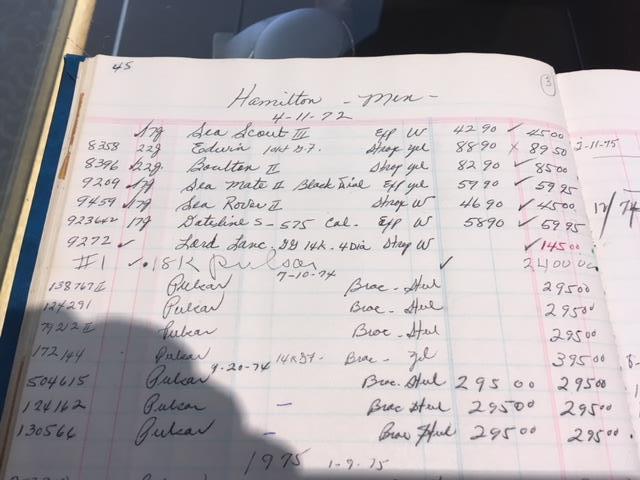 45
3
Hamilton - Men -
4-11-72
17j Sea Scout III Exp W 42 90 ✓ 45 00
8358 22j Edwin 10kt G.F. Strap yel 88 90 x 89 50
8396 22j Boulton II Strap yel 82 90 ✓ 85 00
9209 17j Sea Mate II Black Dial Exp yel 59 90 ✓ 59 95
9459 17j Sea Rover II Strap W 46 90 ✓ 45 00
923642 17j Dateline S-575 Cal. Exp W 58 90 ✓ 59 95
9272 ✓ Lord Lanc. 14K. 4 Dia Strap W ✓ 145 00
#1 ✓ 18K Pulsar ✓ 2400 00
7-10-74
138767 II Pulsar Brac - Steel 295 00
124291 Pulsar Brac - Steel 295 00
79212 II Pulsar Brac - Steel 295 00
172144 Pulsar 14K G.F. Brac - yel 395 00
9-20-74
504615 Pulsar Brac. Steel 295 00 295 00
124162 Pulsar - Brac Steel 295 00 295 00
130566 Pulsar - Brac Steel 295 00 295 00
1975 1-9-75
-11-75
/74